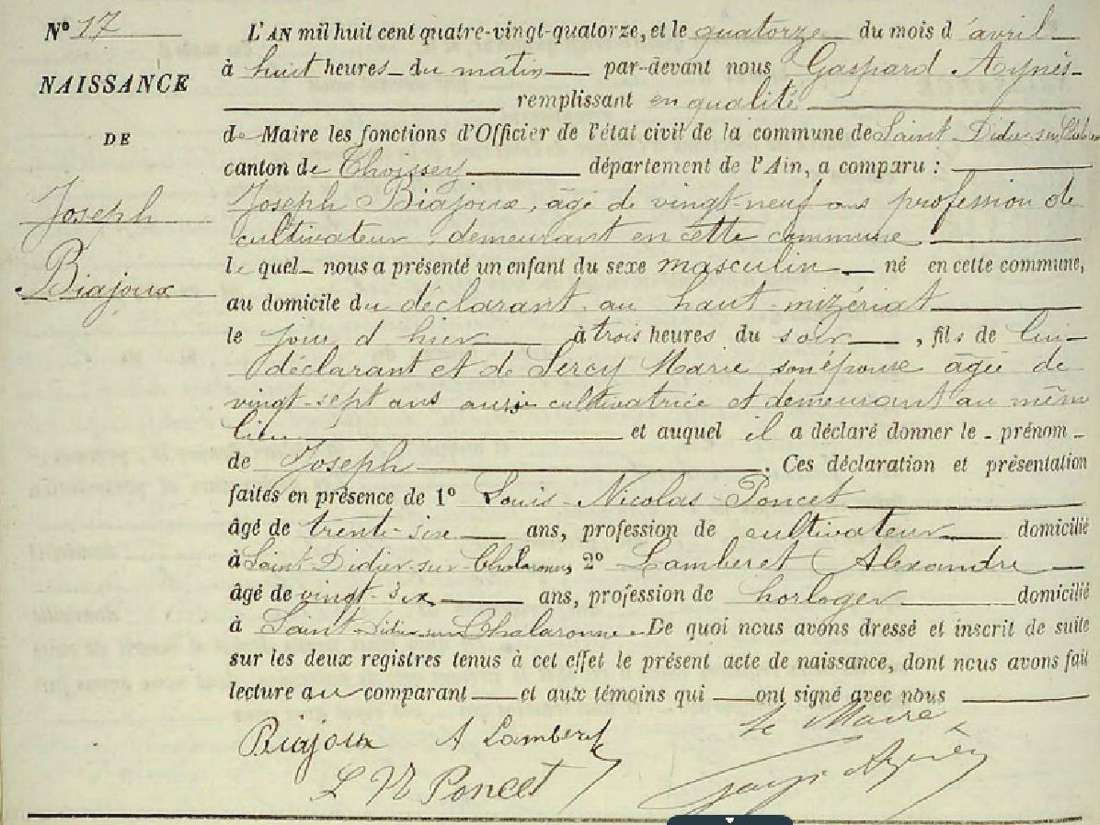 N° 17
NAISSANCE
DE
Joseph
Biajoux
L'AN mil huit cent quatre-vingt-quatorze, et le quatorze du mois d'avril
à huit heures du matin par-devant nous Gaspard Aynès
remplissant en qualité
de Maire les fonctions d'Officier de l'état civil de la commune de Saint Didier sur Chalaronne
canton de Thoissey département de l'Ain, a comparu :
Joseph Biajoux, âgé de vingt-neuf ans profession de
cultivateur, demeurant en cette commune
le quel nous a présenté un enfant du sexe masculin né en cette commune,
au domicile du déclarant au haut-mizériat
le jour d'hier à trois heures du soir, fils de lui
déclarant et de Sercy Marie son épouse âgée de
vingt-sept ans aussi cultivatrice et demeurant au même
lieu et auquel il a déclaré donner le prénom
de Joseph. Ces déclaration et présentation
faites en présence de 1° Louis-Nicolas Poncet
âgé de trente-six ans, profession de cultivateur domicilié
à Saint-Didier-sur-Chalaronne, 2° Lamberet Alexandre
âgé de vingt-six ans, profession de horloger domicilié
à Saint Didier sur Chalaronne. De quoi nous avons dressé et inscrit de suite
sur les deux registres tenus à cet effet le présent acte de naissance, dont nous avons fait
lecture au comparant et aux témoins qui ont signé avec nous
Biajoux A Lamberet le Maire
L N Poncet Aynès